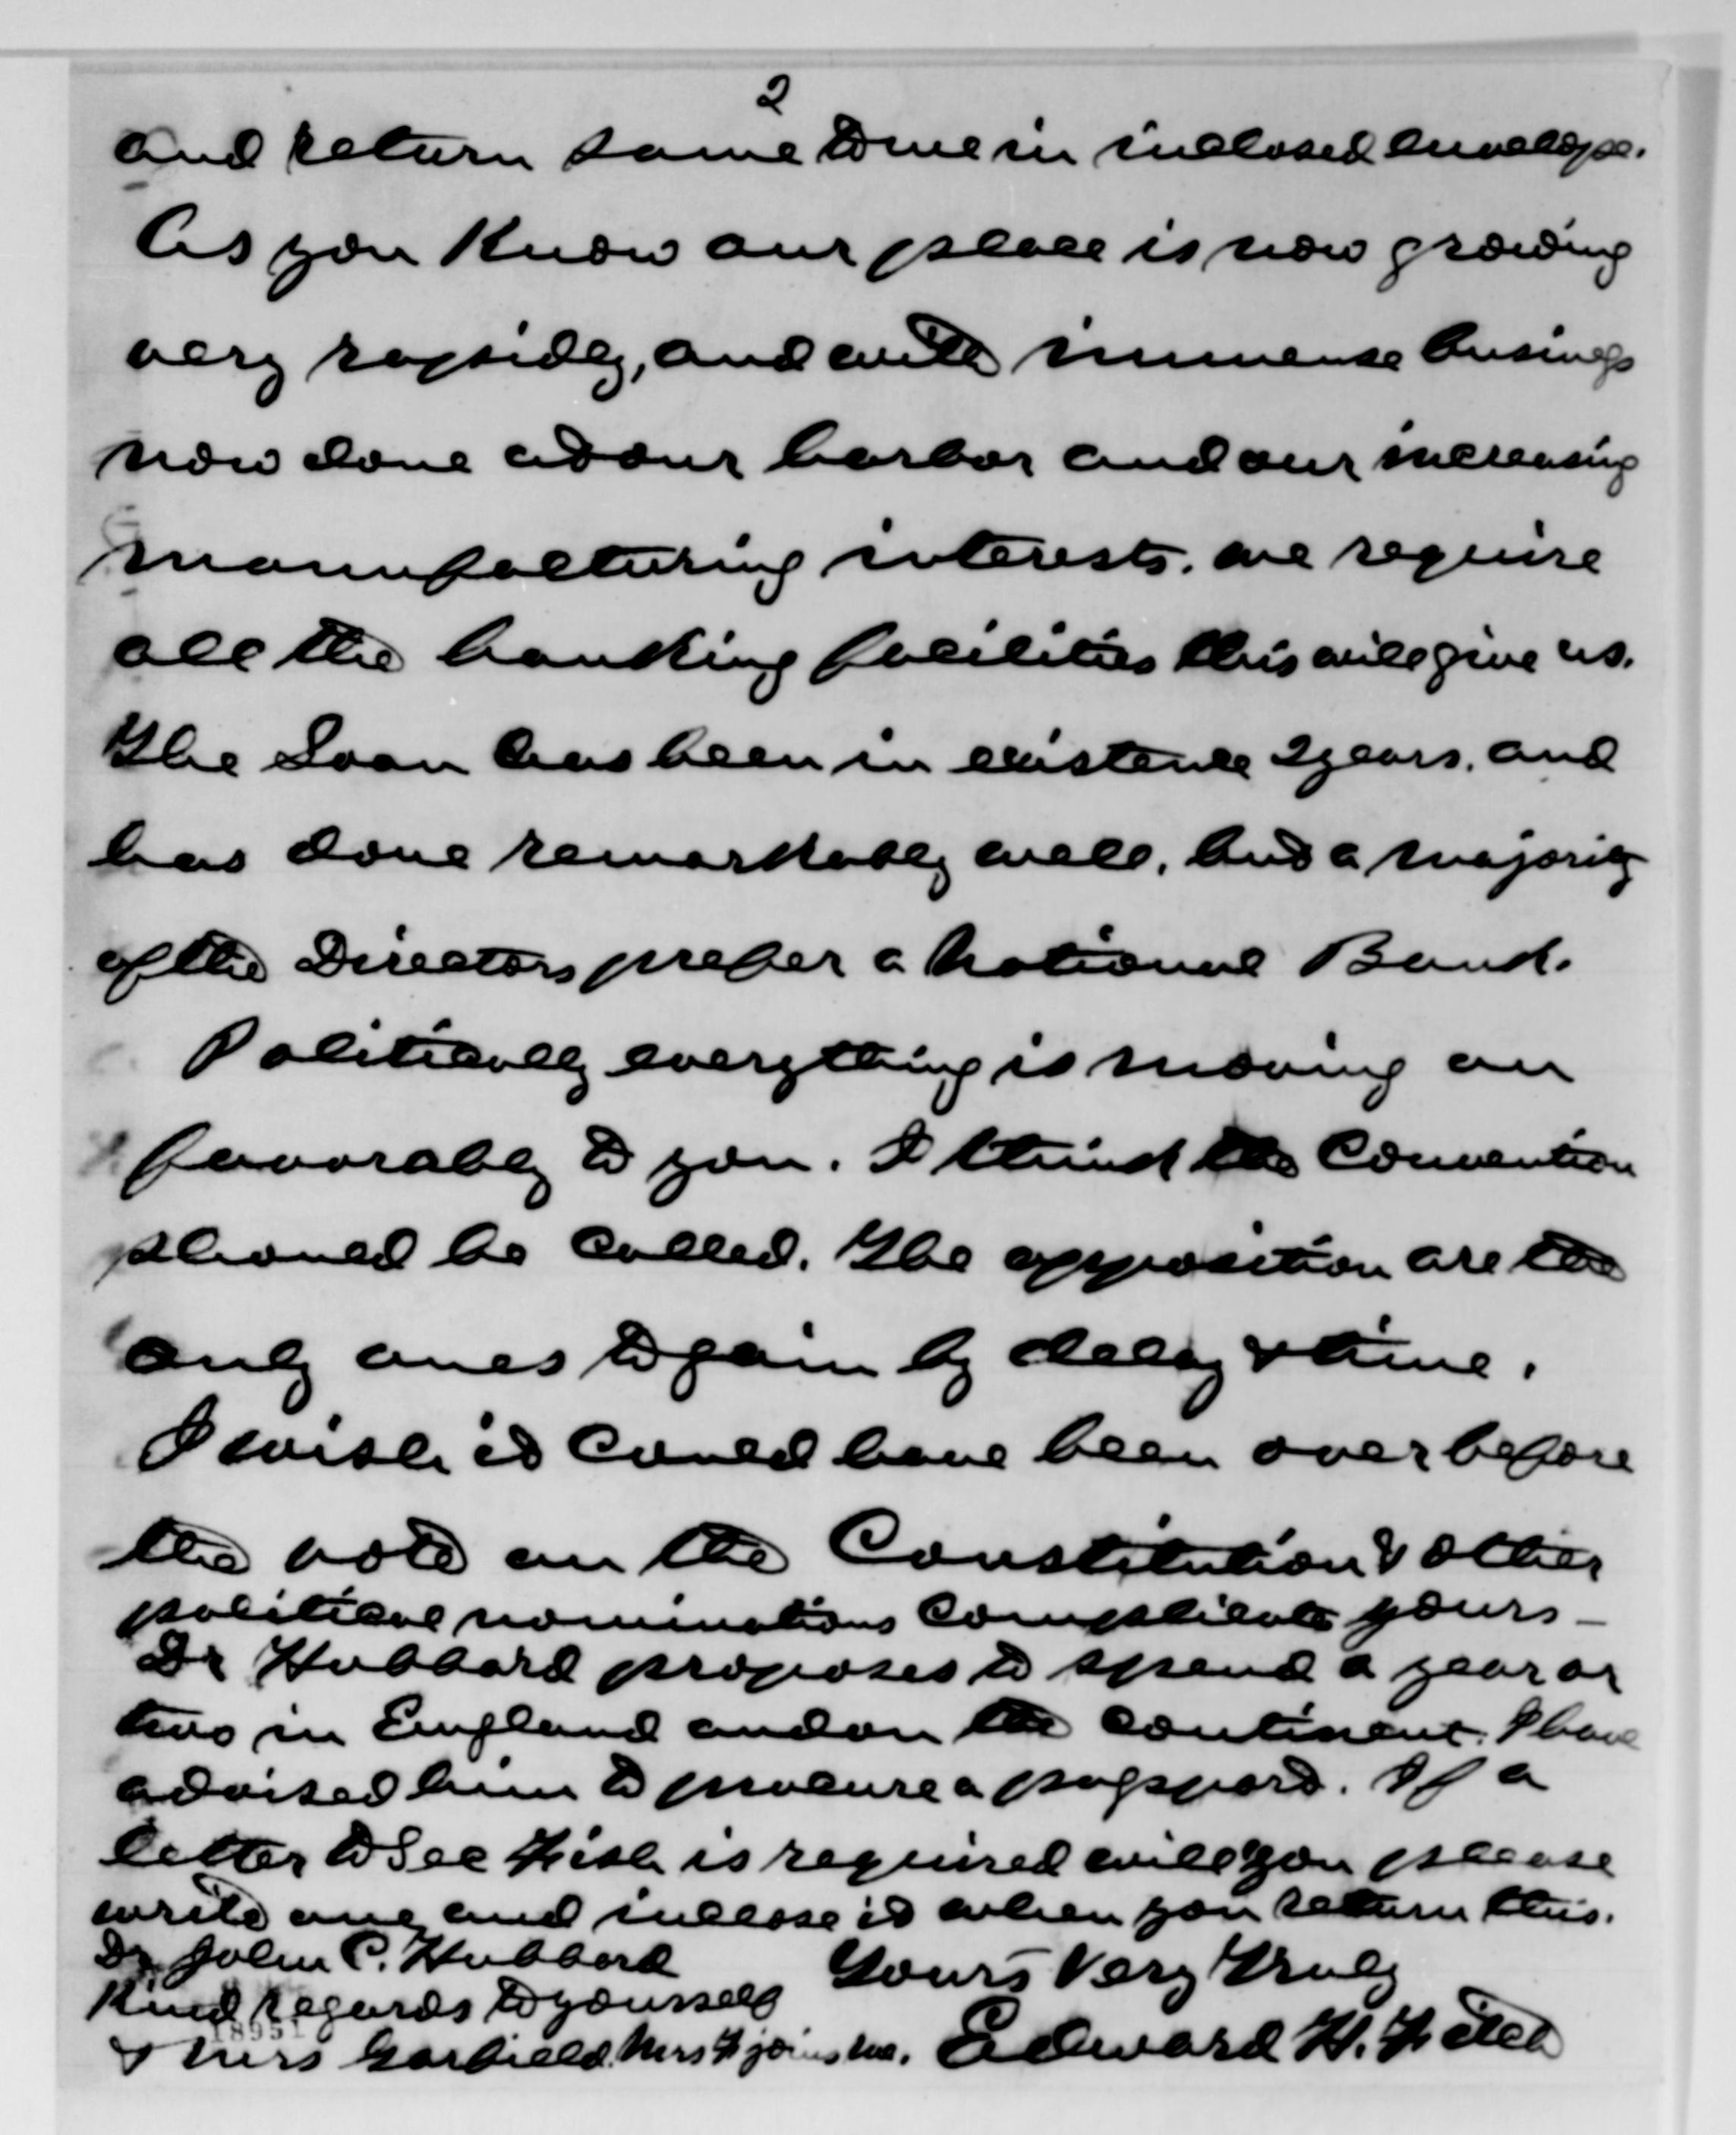 2
and return same to me in inclosed envelope.
As you Know our place is now growing
very rapidly, and with immense business
now done at our harbor and our increasing
manufacturing interests. we require
all the banking facilities this will give us.
The Loan has been in existence 2 years. and
has done remarkably well. but a majority
of the Directors prefer a National Bank.
Politically everything is moving on
favorably to you. I think the Convention
should be called. The opposition are the
only ones to gain by delay & time.
I wish it could have been over before
the vote on the Constitution & other
political nominations complicate yours –
Dr Hubbard proposes to spend a year or
two in England and on the continent. I have
advised him to procure a passport. If a
letter to Sec Fish is required will you please
write one and inclose it when you return this.
Dr. John C. Hubbard
Yours Very Truly
Kind regards to yourself
18951
& Mrs Garfield. Mrs F joins me.
Edward H. Fitch